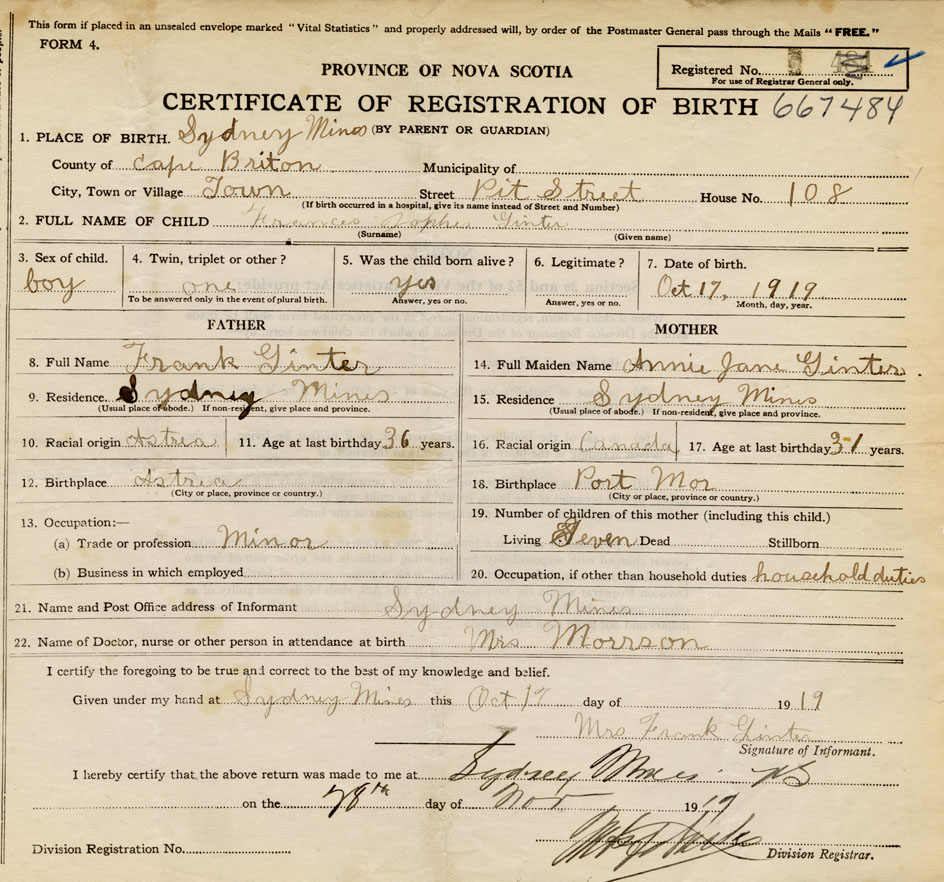 This form if placed in an unsealed envelope marked "Vital Statistics" and properly addressed will, by order of the Postmaster General pass through the Mails "FREE."
FORM 4.
PROVINCE OF NOVA SCOTIA
Registered No.
For use of Registrar General only.
CERTIFICATE OF REGISTRATION OF BIRTH 667484
(BY PARENT OR GUARDIAN)
1. PLACE OF BIRTH. Sydney Mines
County of Cape Briton Municipality of
City, Town or Village Town Street Pit Street House No. 108
(If birth occurred in a hospital, give its name instead of Street and Number)
2. FULL NAME OF CHILD Frances Ginter
(Surname) (Given name)
3. Sex of child. 4. Twin, triplet or other? 5. Was the child born alive? 6. Legitimate? 7. Date of birth.
boy one yes Oct 17, 1919
To be answered only in the event of plural birth. Answer, yes or no. Answer, yes or no. Month, day, year.
FATHER MOTHER
8. Full Name Frank Ginter 14. Full Maiden Name Annie Jane Ginter.
9. Residence. Sydney Mines 15. Residence Sydney Mines
(Usual place of abode.) If non-resident, give place and province. (Usual place of abode.) If non-resident, give place and province.
10. Racial origin Astria 11. Age at last birthday 36 years. 16. Racial origin Canada 17. Age at last birthday 31 years.
12. Birthplace Astria 18. Birthplace Port Mor
(City or place, province or country.) (City or place, province or country.)
13. Occupation:— 19. Number of children of this mother (including this child.)
(a) Trade or profession Minor Living Seven Dead Stillborn
(b) Business in which employed 20. Occupation, if other than household duties household duties
21. Name and Post Office address of Informant Sydney Mines
22. Name of Doctor, nurse or other person in attendance at birth Mrs Morrson
I certify the foregoing to be true and correct to the best of my knowledge and belief.
Given under my hand at Sydney Mines this Oct 17 day of 1919
Mrs Frank Ginter
Signature of Informant.
I hereby certify that the above return was made to me at Sydney Mines NS
on the 28th day of Nov 1919
Division Registration No. Division Registrar.